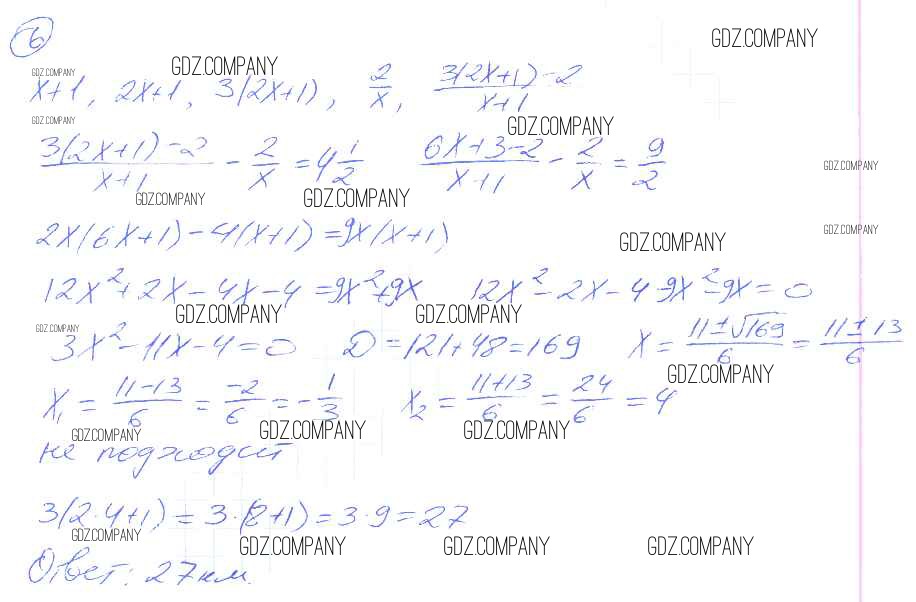 6
GDZ.COMPANY
GDZ.COMPANY GDZ.COMPANY
x+1, 2x+1, 3(2x+1), 2/x, (3(2x+1)-2)/(x+1)
GDZ.COMPANY GDZ.COMPANY
(3(2x+1)-2)/(x+1) - 2/x = 4 1/2 (6x+3-2)/(x+1) - 2/x = 9/2
GDZ.COMPANY
GDZ.COMPANY GDZ.COMPANY
2x(6x+1)-4(x+1)=9x(x+1)
GDZ.COMPANY GDZ.COMPANY
12x²+2x-4x-4=9x²+9x 12x²-2x-4-9x²-9x=0
GDZ.COMPANY GDZ.COMPANY
GDZ.COMPANY
3x²-11x-4=0 D=121+48=169 x=(11±√169)/6=(11±13)/6
GDZ.COMPANY
x₁=(11-13)/6=-2/6=-1/3 x₂=(11+13)/6=24/6=4
GDZ.COMPANY GDZ.COMPANY GDZ.COMPANY
не подходит
3(2·4+1)=3·(8+1)=3·9=27
GDZ.COMPANY
GDZ.COMPANY GDZ.COMPANY GDZ.COMPANY
Ответ: 27 км.